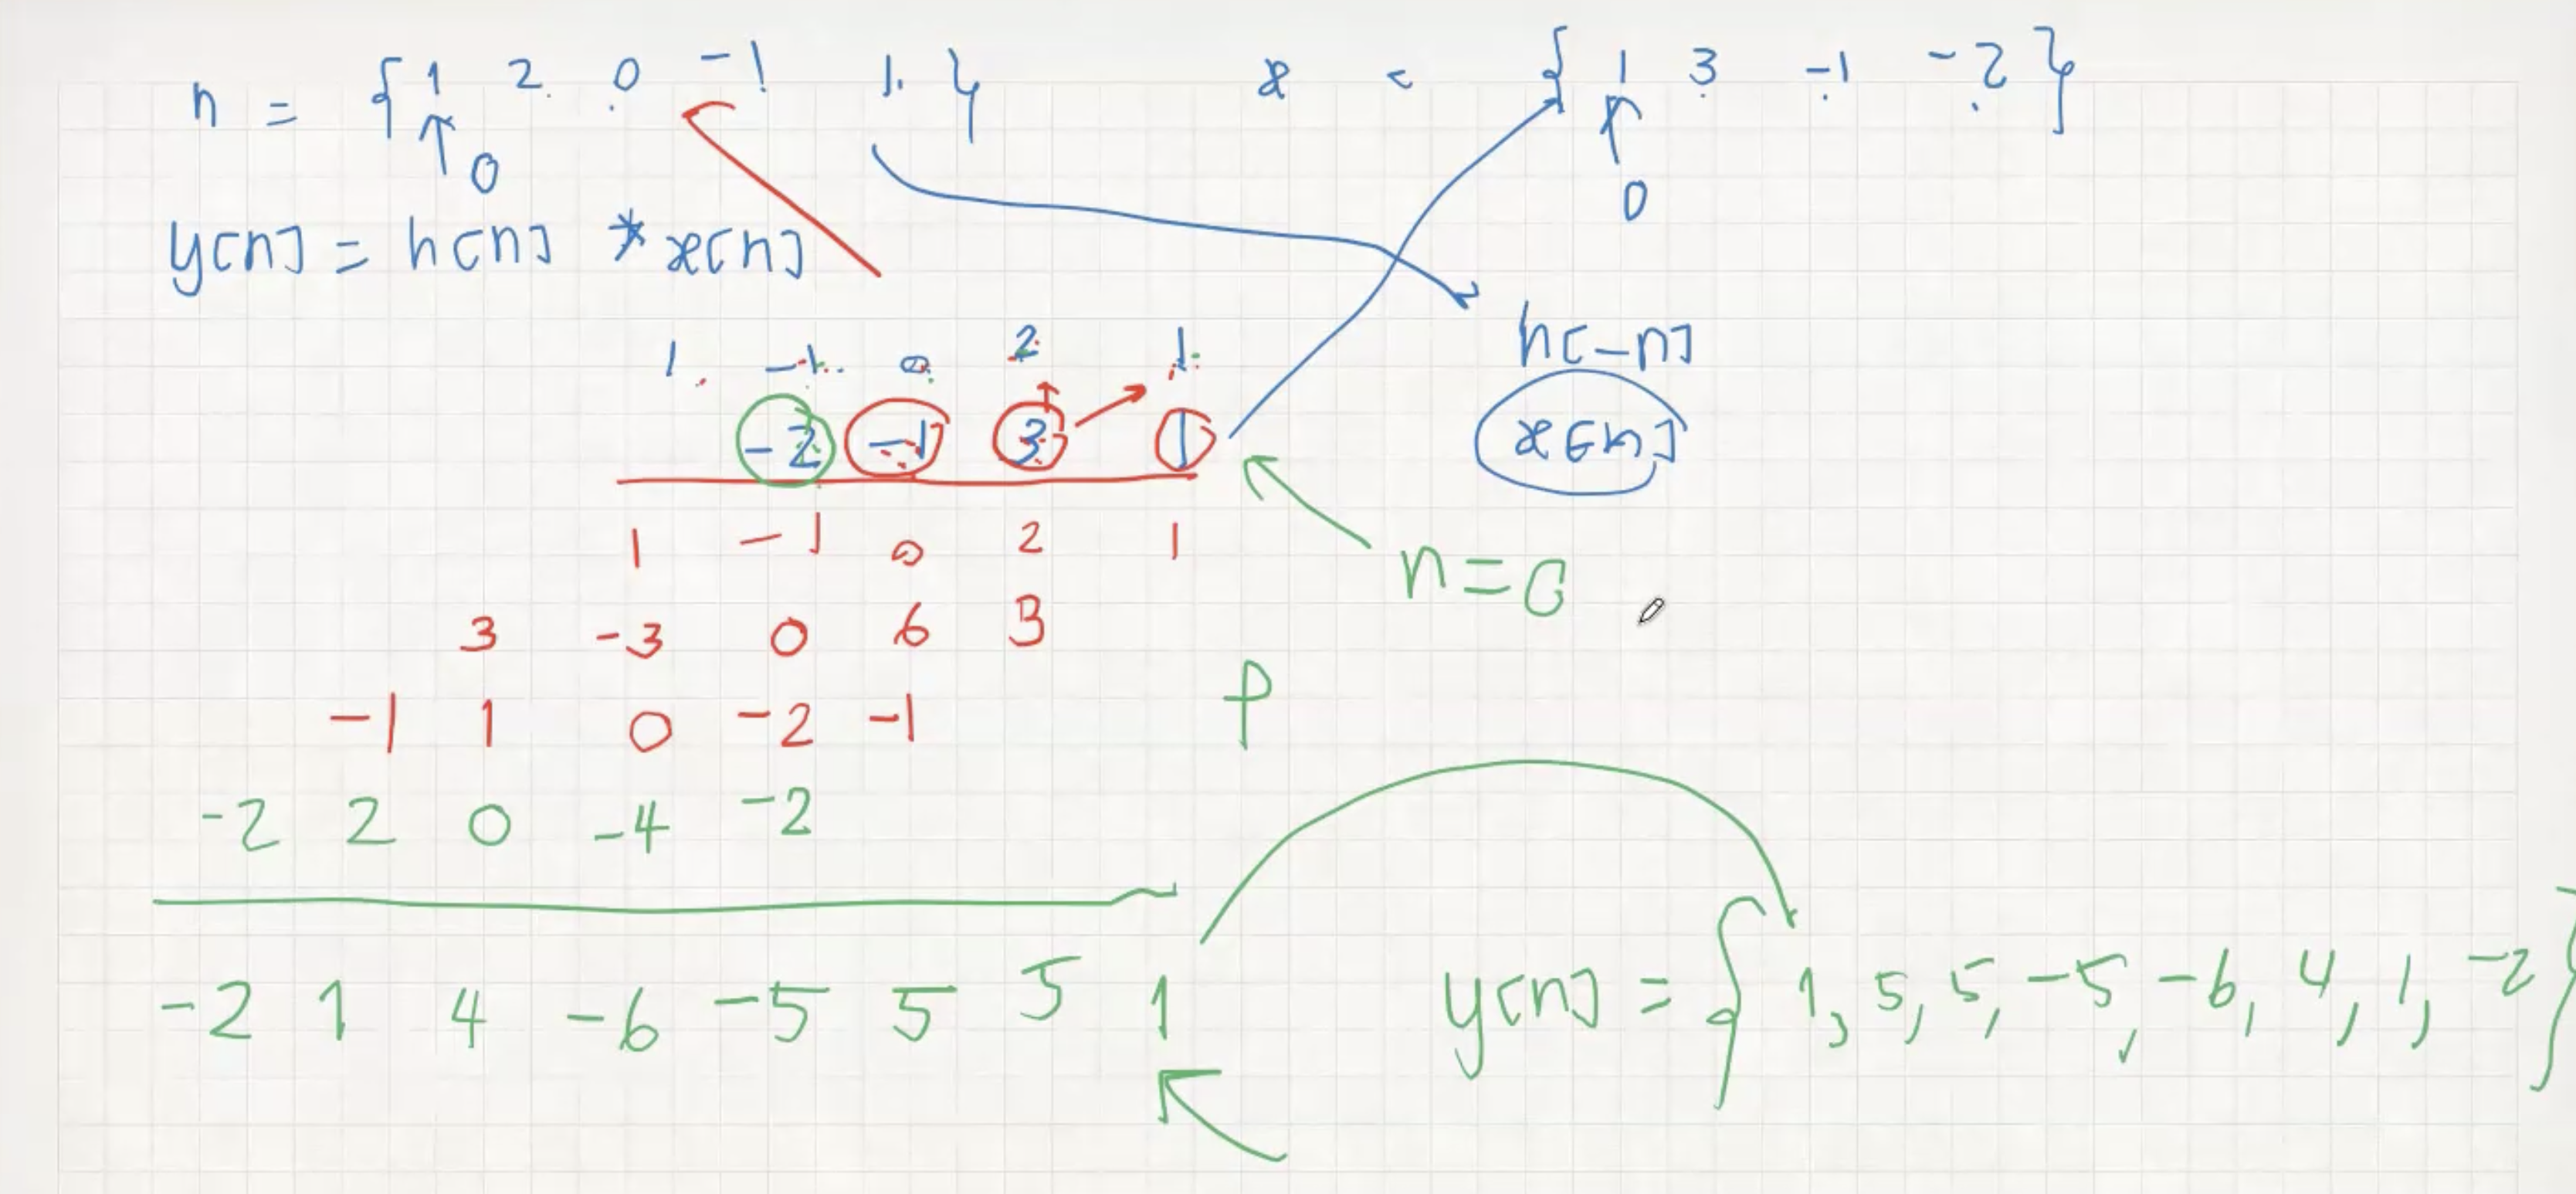 h = { 1 2 0 -1 1 }
x = { 1 3 -1 -2 }
0
0
y[n] = h[n] * x[n]
1 -1 0 2 1 h[-n]
-2 -1 3 1 x[n]
1 -1 0 2 1
n=0
3 -3 0 6 3
-1 1 0 -2 -1
-2 2 0 -4 -2
-2 1 4 -6 -5 5 5 1
y[n] = { 1, 5, 5, -5, -6, 4, 1, -2 }